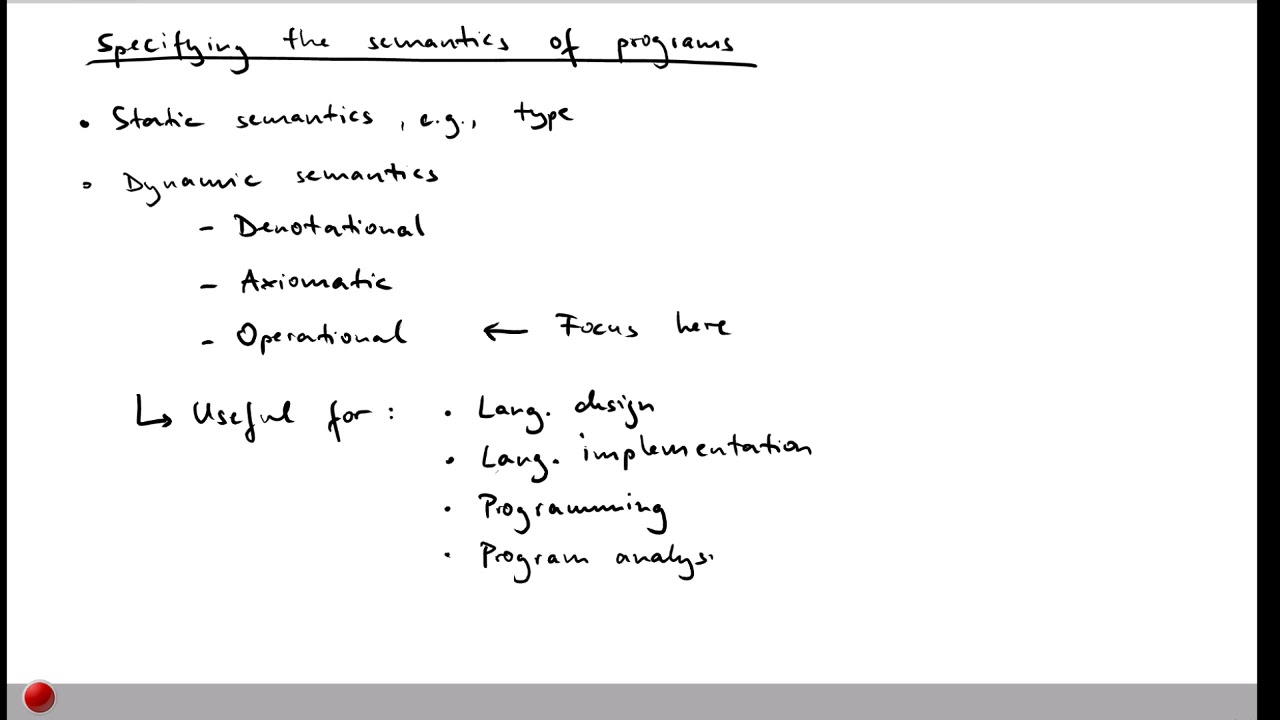 Specifying the semantics of programs
• Static semantics, e.g., type
• Dynamic semantics
- Denotational
- Axiomatic
- Operational ← Focus here
↳ Useful for: • Lang. design
• Lang. implementation
• Programming
• Program analys